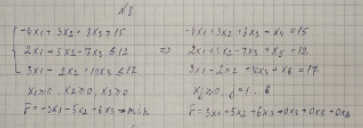 № 8.
-4x1 + 3x2 + 8x3 ≥ 15
2x1 + 5x2 - 7x3 ≤ 12
3x1 - 2x2 + 10x3 ≤ 17
x1 ≥ 0, x2 ≥ 0, x3 ≥ 0
F = -3x1 - 5x2 - 6x3 → min
⇒
-4x1 + 3x2 + 8x3 - x4 = 15
2x1 + 5x2 - 7x3 + x5 = 12
3x1 - 2x2 + 10x3 + x6 = 17
xj ≥ 0, j = 1...6
F = -3x1 + 5x2 + 6x3 + 0x4 + 0x5 + 0x6